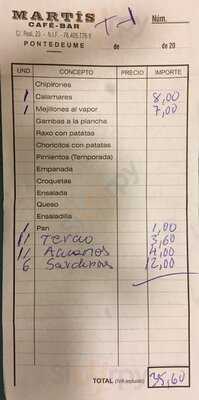 MARTÍS
CAFÉ-BAR
C/. Real, 23 - N.I.F. - 76.405.776 Y
PONTEDEUME
T-1
Núm.
de de 20
UND CONCEPTO PRECIO IMPORTE
Chipirones
1 Calamares 8,00
1 Mejillones al vapor 7,00
Gambas a la plancha
Raxo con patatas
Choricitos con patatas
Pimientos (Temporada)
Empanada
Croquetas
Ensalada
Queso
Ensaladilla
1 Pan 1,00
11 Tercio 3,60
11 Acuarios 4,00
6 Sardinas 12,00
TOTAL (IVA incluido) 35,60